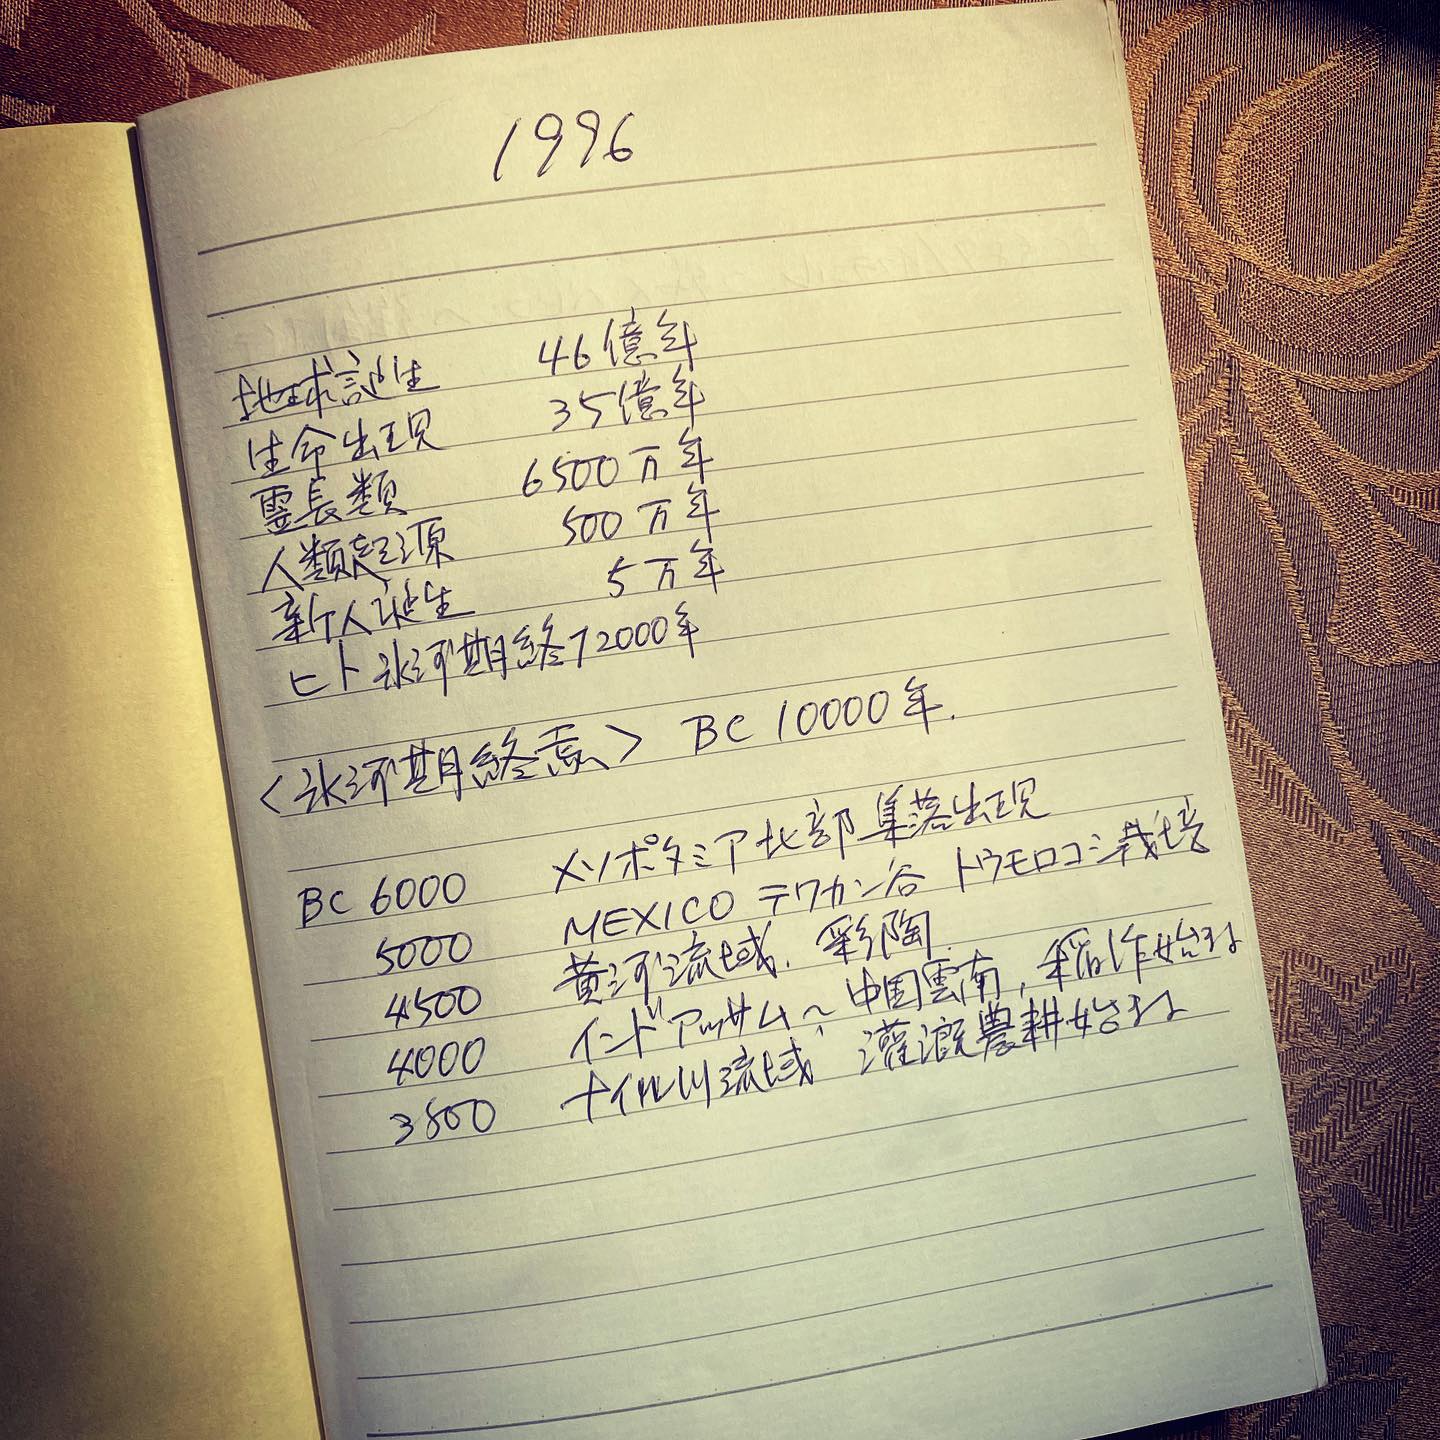 1996
地球誕生 46億年
生命出現 35億年
霊長類 6500万年
人類起源 500万年
新人誕生 5万年
ヒト氷河期終12000年
<氷河期終焉> BC 10000年.
BC 6000 メソポタミア北部集落出現
5000 MEXICO テワカン谷 トウモロコシ栽培
4500 黄河流域. 彩陶.
4000 インドアッサム〜中国雲南, 稲作始まる
3800 ナイル川流域 灌漑農耕始まる